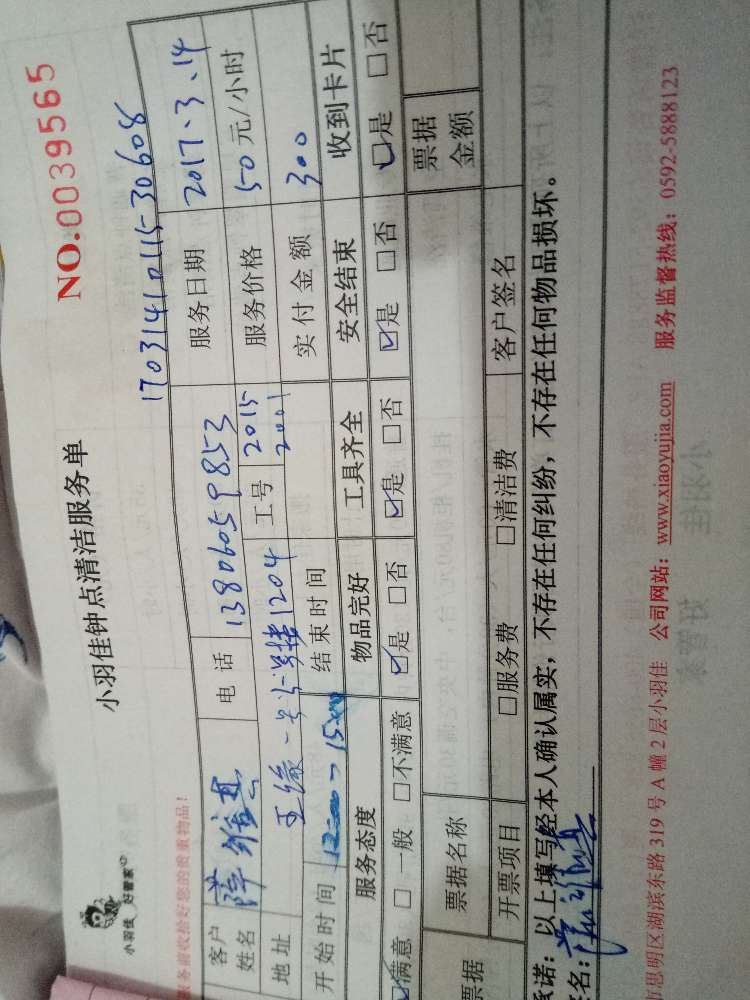 小羽佳 好管家
小羽佳钟点清洁服务单
NO.0039565
服务前收拾好您的贵重物品!
170314102115-30608
客户姓名 电话 13806059853 服务日期 2017、3、14
地址 1204 工号 2015 2001 服务价格 50元/小时
开始时间 12:00-15:00 结束时间 实付金额 300
服务态度 物品完好 工具齐全 安全结束 收到卡片
☑满意 □一般 □不满意 ☑是 □否 ☑是 □否 ☑是 □否 ☑是 □否
票据 票据名称 票据金额
开票项目 □服务费 □清洁费 客户签名
承诺:以上填写经本人确认属实,不存在任何纠纷,不存在任何物品损坏。
签名:
市思明区湖滨东路319号A幢2层小羽佳 公司网站:www.xiaoyujia.com 服务监督热线:0592-5888123